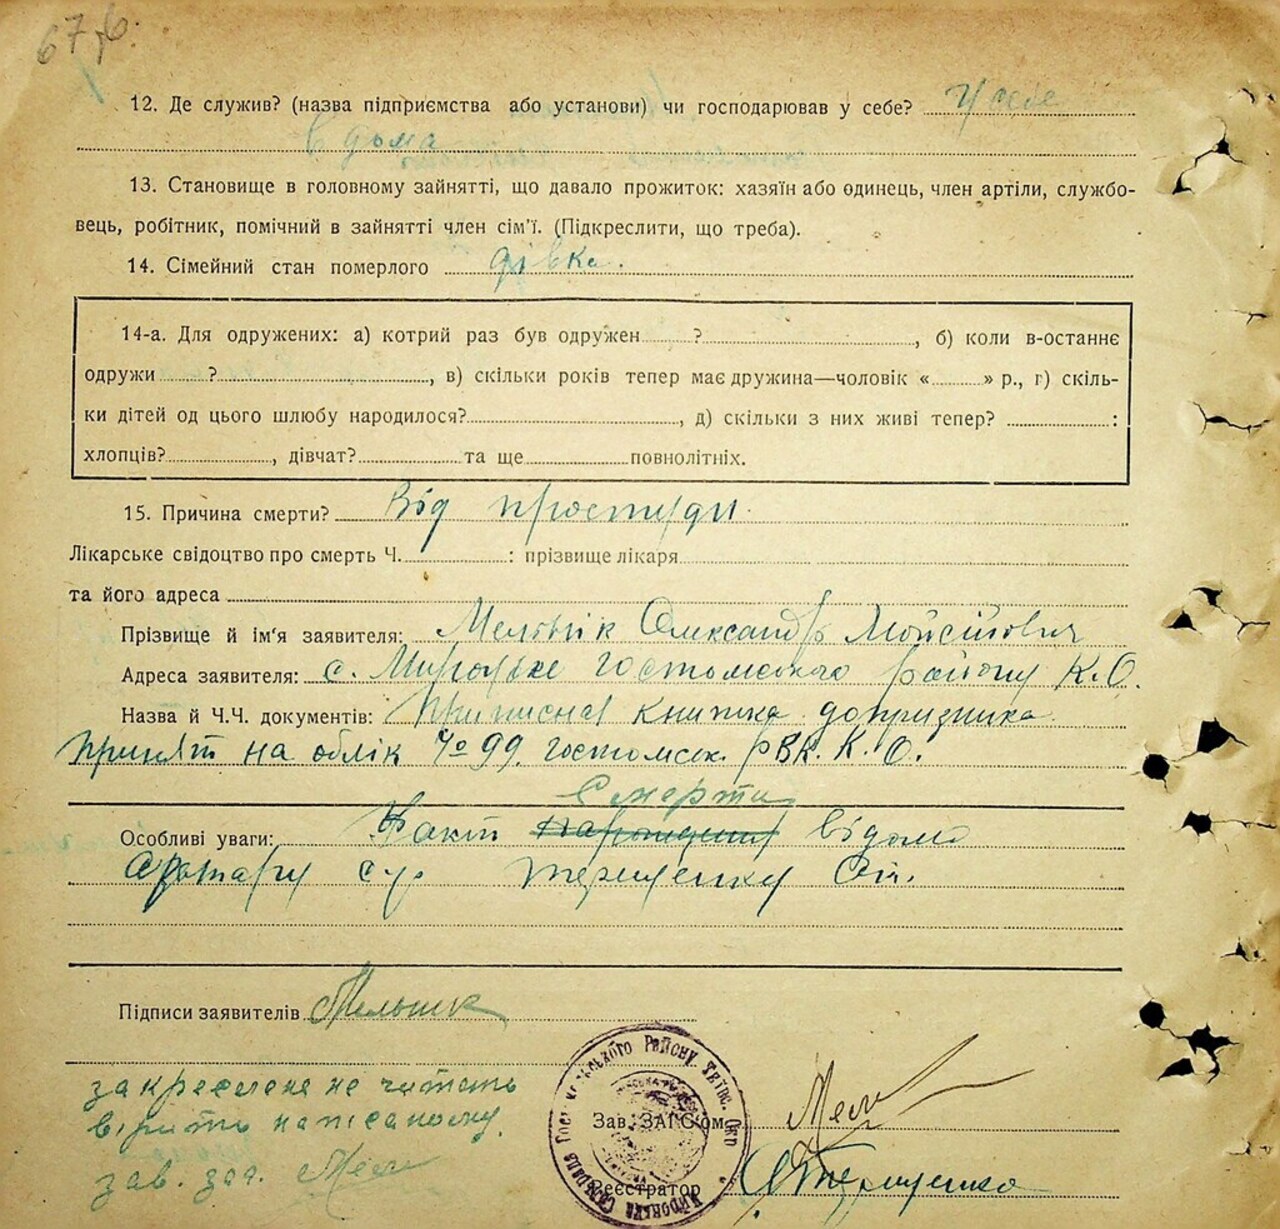 67
12. Де служив? (назва підприємства або установи) чи господарював у себе? У себе
в дома
13. Становище в головному зайнятті, що давало прожиток: хазяїн або одинець, член артіли, службо-
вець, робітник, помічний в зайнятті член сім'ї. (Підкреслити, що треба).
14. Сімейний стан померлого дівка.
14-а. Для одружених: а) котрий раз був одружен ? , б) коли в-останнє
одружи ? , в) скільки років тепер має дружина—чоловік « » р., г) скіль-
ки дітей од цього шлюбу народилося? , д) скільки з них живі тепер? :
хлопців? , дівчат? та ще повнолітніх.
15. Причина смерти? Від простуди
Лікарське свідоцтво про смерть Ч. : прізвище лікаря
та його адреса
Прізвище й ім'я заявителя: Мельнік Олександр Мойсійович
Адреса заявителя: с. Мироцьке Гостомського району К.О.
Назва й Ч.Ч. документів: Приписна книжка допризника
принят на облік № 99. гостомськ. РВК. К. О.
Смерти
Особливі уваги: Факт народження відомо
с/р терещенку
Підписи заявителів Мельник
закреслене не читать
вірить написаному.
зав. заг.
Району
Зав. ЗАГС'ом
Реєстратор Терещенко